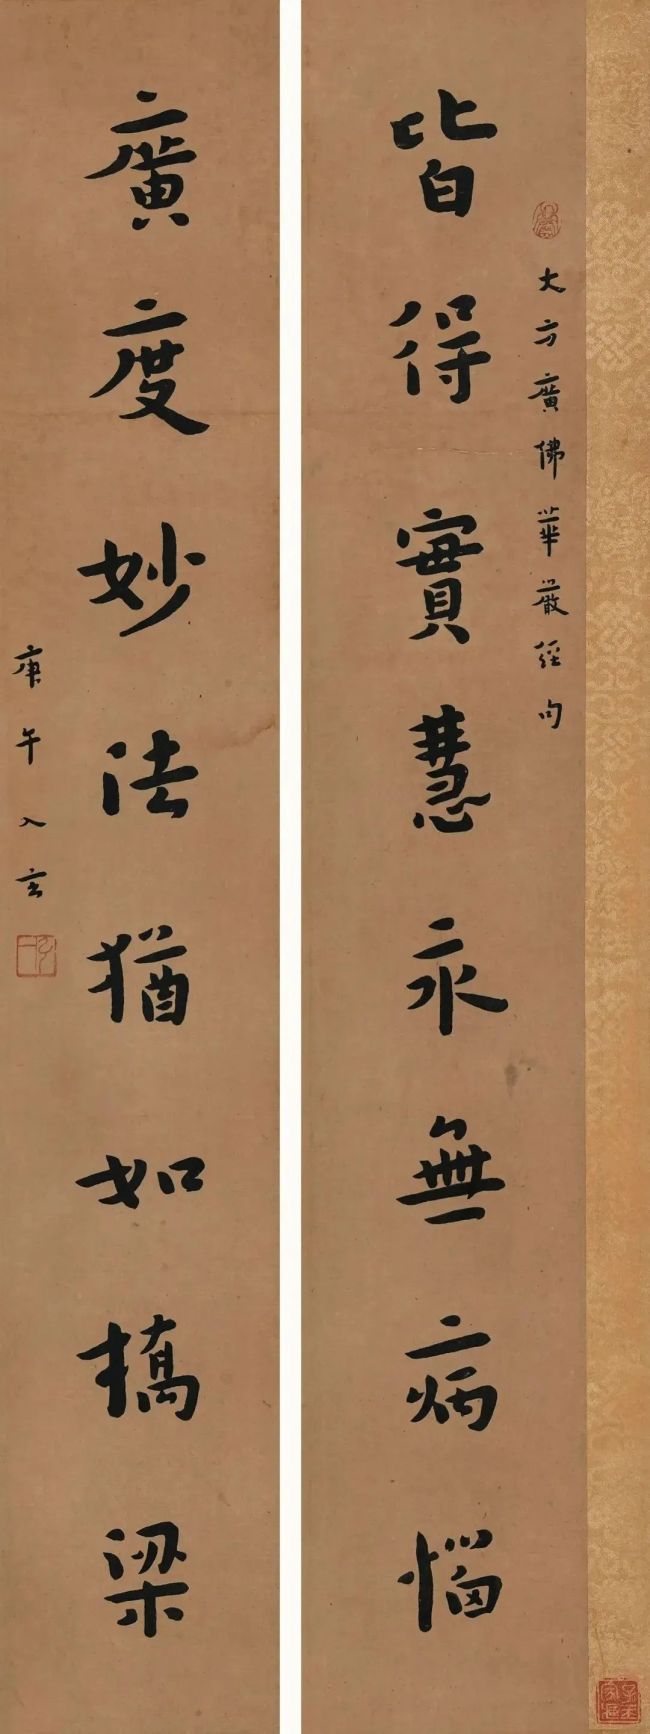 大方廣佛華嚴經句
皆得實慧永無病惱
廣度妙法猶如橋梁
庚午入玄